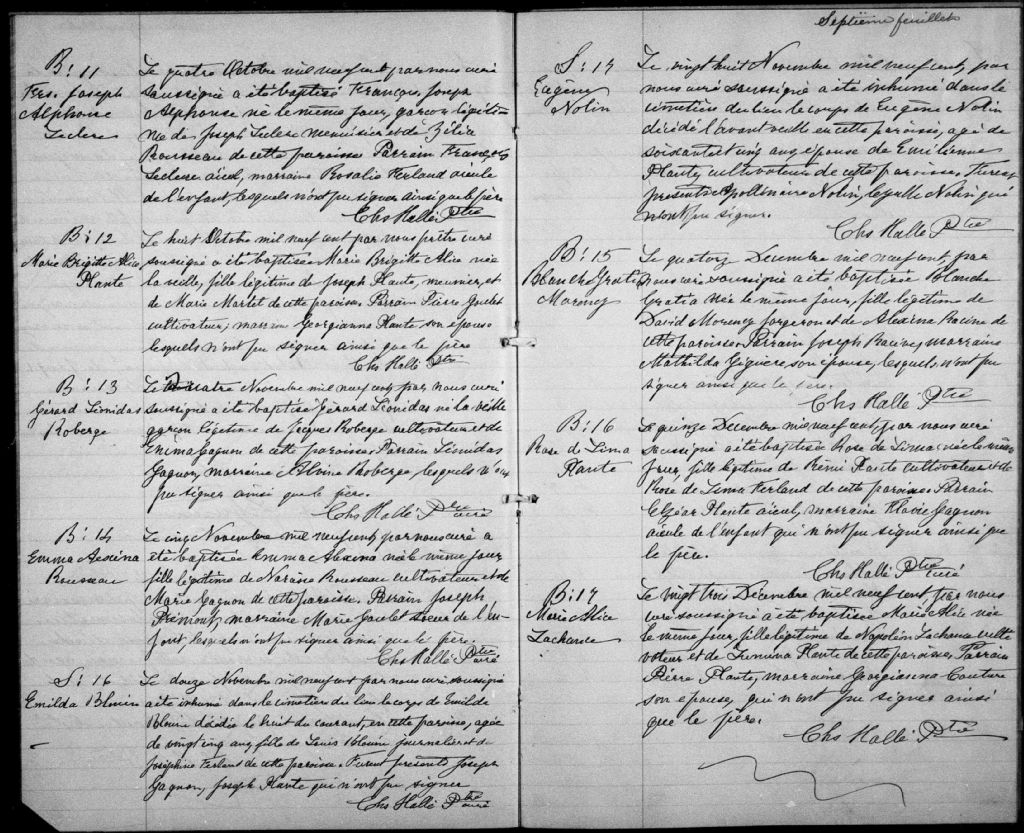 Septième feuillet
B: 11
Frs. Joseph
Alphonse
Leclerc
Le quatre Octobre mil neuf cent par nous curé
soussigné a été baptisé François Joseph
Alphonse né le même jour, garçon légiti-
me de Joseph Leclerc menuisier et de Zélia
Rousseau de cette paroisse Parrain François
Leclerc aïeul, marraine Rosalie Ferland aïeule
de l'enfant, lesquels n'ont pu signer ainsi que le père
Chs Hallé Ptre
B: 12
Marie Brigitte Alice
Plante
Le huit Octobre mil neuf cent par nous prêtre curé
soussigné a été baptisée Marie Brigitte Alice née
la veille, fille légitime de Joseph Plante, meunier et
de Marie Martel de cette paroisse Parrain Pierre Goulet
cultivateur, marraine Georgianna Plante, son épouse
lesquels n'ont pu signer ainsi que le père
Chs Hallé Ptre
B: 13
Gérard Léonidas
Roberge
Le Quatre Novembre mil neuf cent, par nous curé
soussigné a été baptisé Gérard Léonidas né la veille
garçon légitime de Jacques Roberge cultivateur et de
Enéma Gagnon de cette paroisse Parrain Léonidas
Gagnon, marraine Roberge, lesquels n'ont
pu signer ainsi que le père.
Chs Hallé Ptre curé
B: 14
Emma Alexina
Rousseau
Le cinq Novembre mil neuf cent, par nous curé a
été baptisée Emma Alexina née le même jour
fille légitime de Narcisse Rousseau cultivateur et de
Marie Gagnon de cette paroisse. Parrain Joseph
Prémont, marraine Marie Goulet soeur de l'en-
fant, lesquels n'ont pu signer ainsi que le père.
Chs Hallé Ptre curé
S: 16
Emilda Blouin
Le douze Novembre mil neuf cent par nous curé soussigné
a été inhumé dans le cimetière du lieu le corps de Emilda
Blouin décédée le huit du courant, en cette paroisse, agée
de vingt cinq ans, fille de Louis Blouin journalier et de
Joséphine Ferland de cette paroisse Furent présents Joseph
Gagnon, Joseph Plante qui n'ont pu signer
Chs Hallé Ptre curé
S: 17
Eugène
Nolin
Le vingt huit Novembre mil neuf cent, par
nous curé soussigné a été inhumé dans le
cimetière du lieu le corps de Eugène Nolin
décédé l'avant veille en cette paroisse, agé de
soixante et cinq ans époux de Emilienne
Plante, cultivateur de cette paroisse. Furent
présents Apollinaire Nolin, Nolin qui
n'ont pu signer.
Chs Hallé Ptre
B: 15
Blanche Gratia
Morency
Le quatorze Decembre mil neuf cent, par
nous curé soussigné a été baptisée Blanche
Gratia née le meme jour, fille légitime de
David Morency forgeron et de Alexina Racine de
cette paroisse Parrain Joseph Racine, marraine
Mathilda Giguère, son épouse, lesquels n'ont pu
signer ainsi que le père.
Chs Hallé Ptre
B: 16
Rose de Lima
Plante
Le quinze Decembre mil neuf cent, par nous curé
soussigné a été baptisée Rose de Lima née le même
jour, fille légitime de Rémi Plante cultivateur et de
Rose de Lima Ferland de cette paroisse. Parrain
Elzéar Plante aïeul, marraine Flavie Gagnon
aïeule de l'enfant qui n'ont pu signer ainsi que
le père.
Chs Hallé Ptre curé
B: 17
Marie Alice
Lachance
Le vingt trois Decembre mil neuf cent par nous
curé soussigné a été baptisée Marie Alice née
le meme jour, fille légitime de Napoléon Lachance culti-
vateur et de Plante de cette paroisse. Parrain
Pierre Plante, marraine Georgianna Couture
son épouse, qui n'ont pu signer ainsi
que le père.
Chs Hallé Ptre